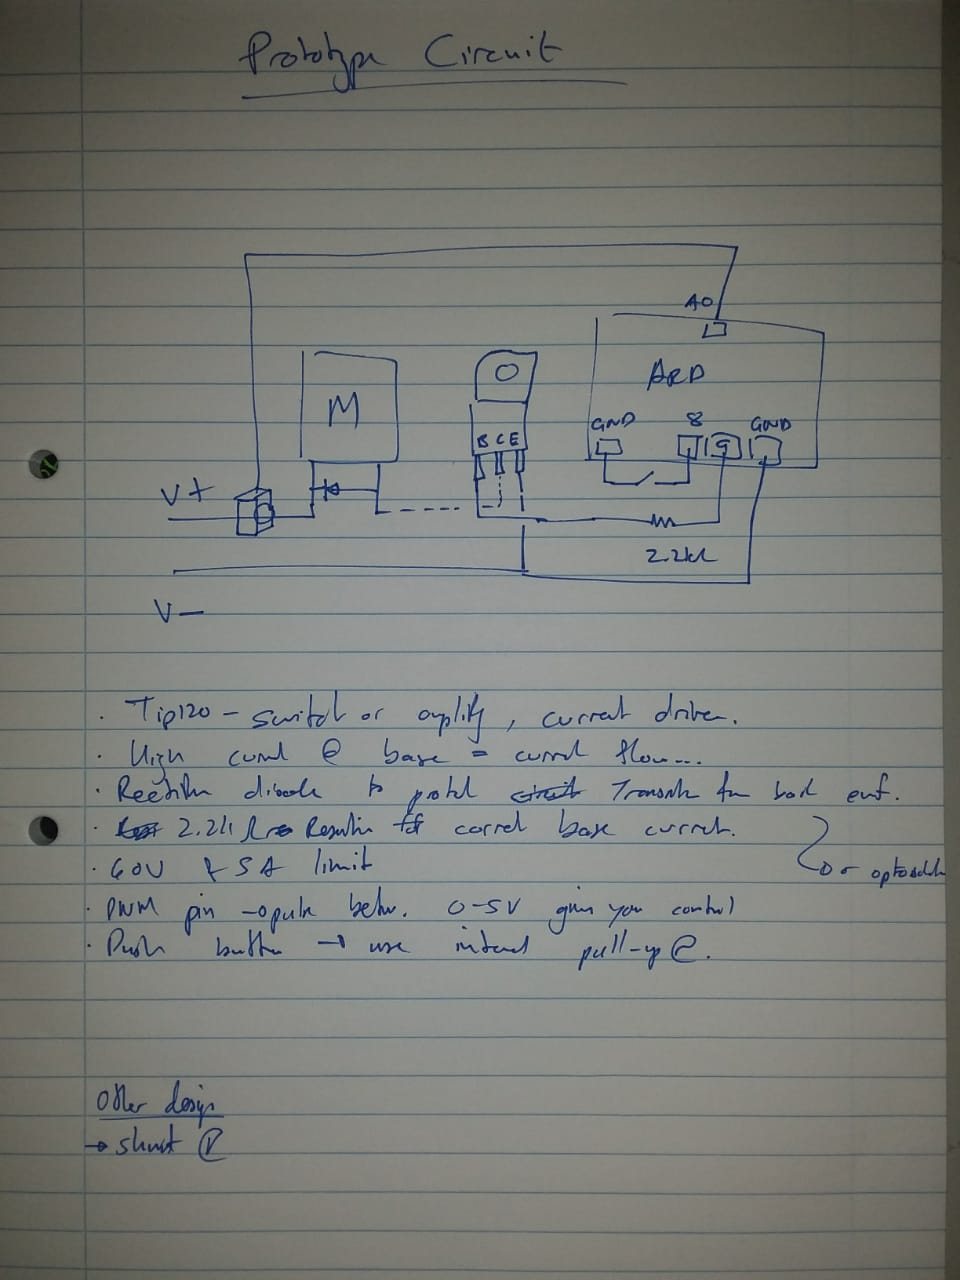 Prototype Circuit
A0
ARD
M
GND 8 9 GND
B C E
V+
2.2kΩ
V-
· Tip120 - switch or amplify, current driven.
· High current @ base = current flow...
· diode to protect circuit from back emf.
· 2.2k Resistor for correct base current.
· 60V & 5A limit
or
· PWM pin → pulse betw. 0-5V gives you control
· Push button → use internal pull-up R.
Other design
→ shunt R